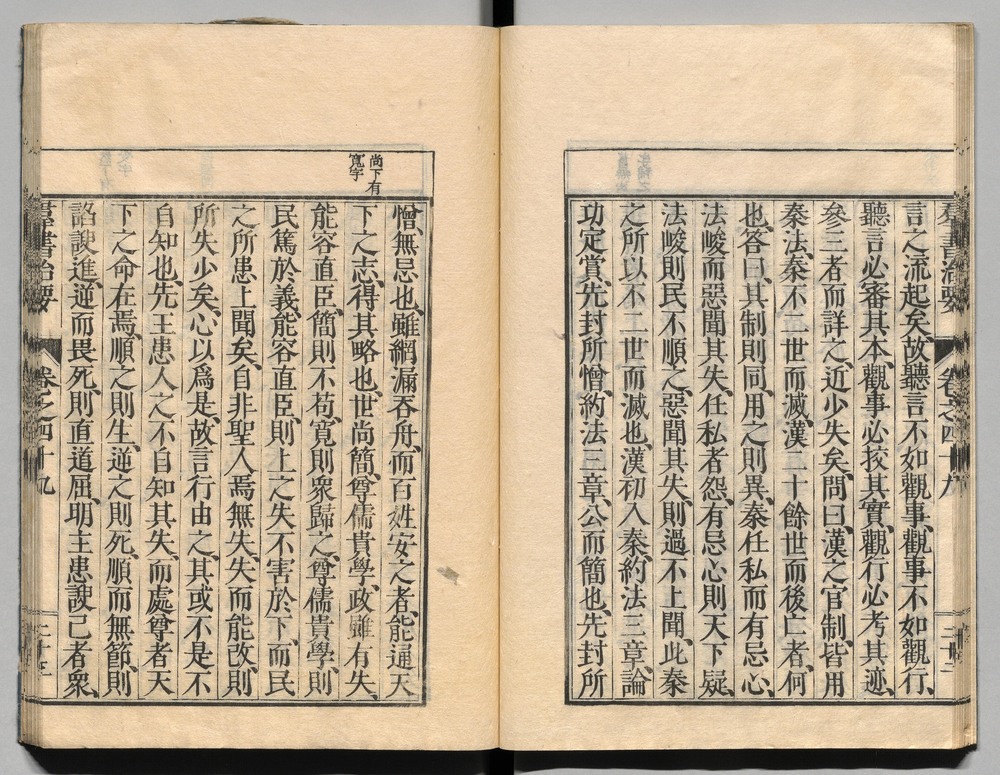 羣書治要 卷之四十九
言之流起矣、故聽言不如觀事、觀事不如觀行、
聽言必審其本、觀事必挍其實、觀行必考其迹、
參三者而詳之、近少失矣、問曰、漢之官制、皆用
秦法、秦不二世而滅、漢二十餘世而後亡者、何
也、答曰、其制則同、用之則異、秦任私而有忌心、
法峻而惡聞其失、任私者怨、有忌心則天下疑、
法峻則民不順之、惡聞其失、則過不上聞、此秦
之所以不二世而滅也、漢初入秦、約法三章、論
功定賞、先封所憎、約法三章、公而簡也、先封所
尚下有
寬字
憎、無忌也、雖網漏吞舟、而百姓安之者、能通天
下之志、得其略也、世尚簡、尊儒貴學、政雖有失、
能容直臣、簡則不苟、寬則衆歸之、尊儒貴學、則
民篤於義、能容直臣、則上之失不害於下、而民
之所患上聞矣、自非聖人、焉無失、失而能改、則
所失少矣、心以爲是、故言行由之、其或不是不
自知也、先王患人之不自知其失、而處尊者天
下之命在焉、順之則生、逆之則死、順而無節、則
諂諛進、逆而畏死、則直道屈、明主患諛己者衆、
羣書治要 卷之四十九